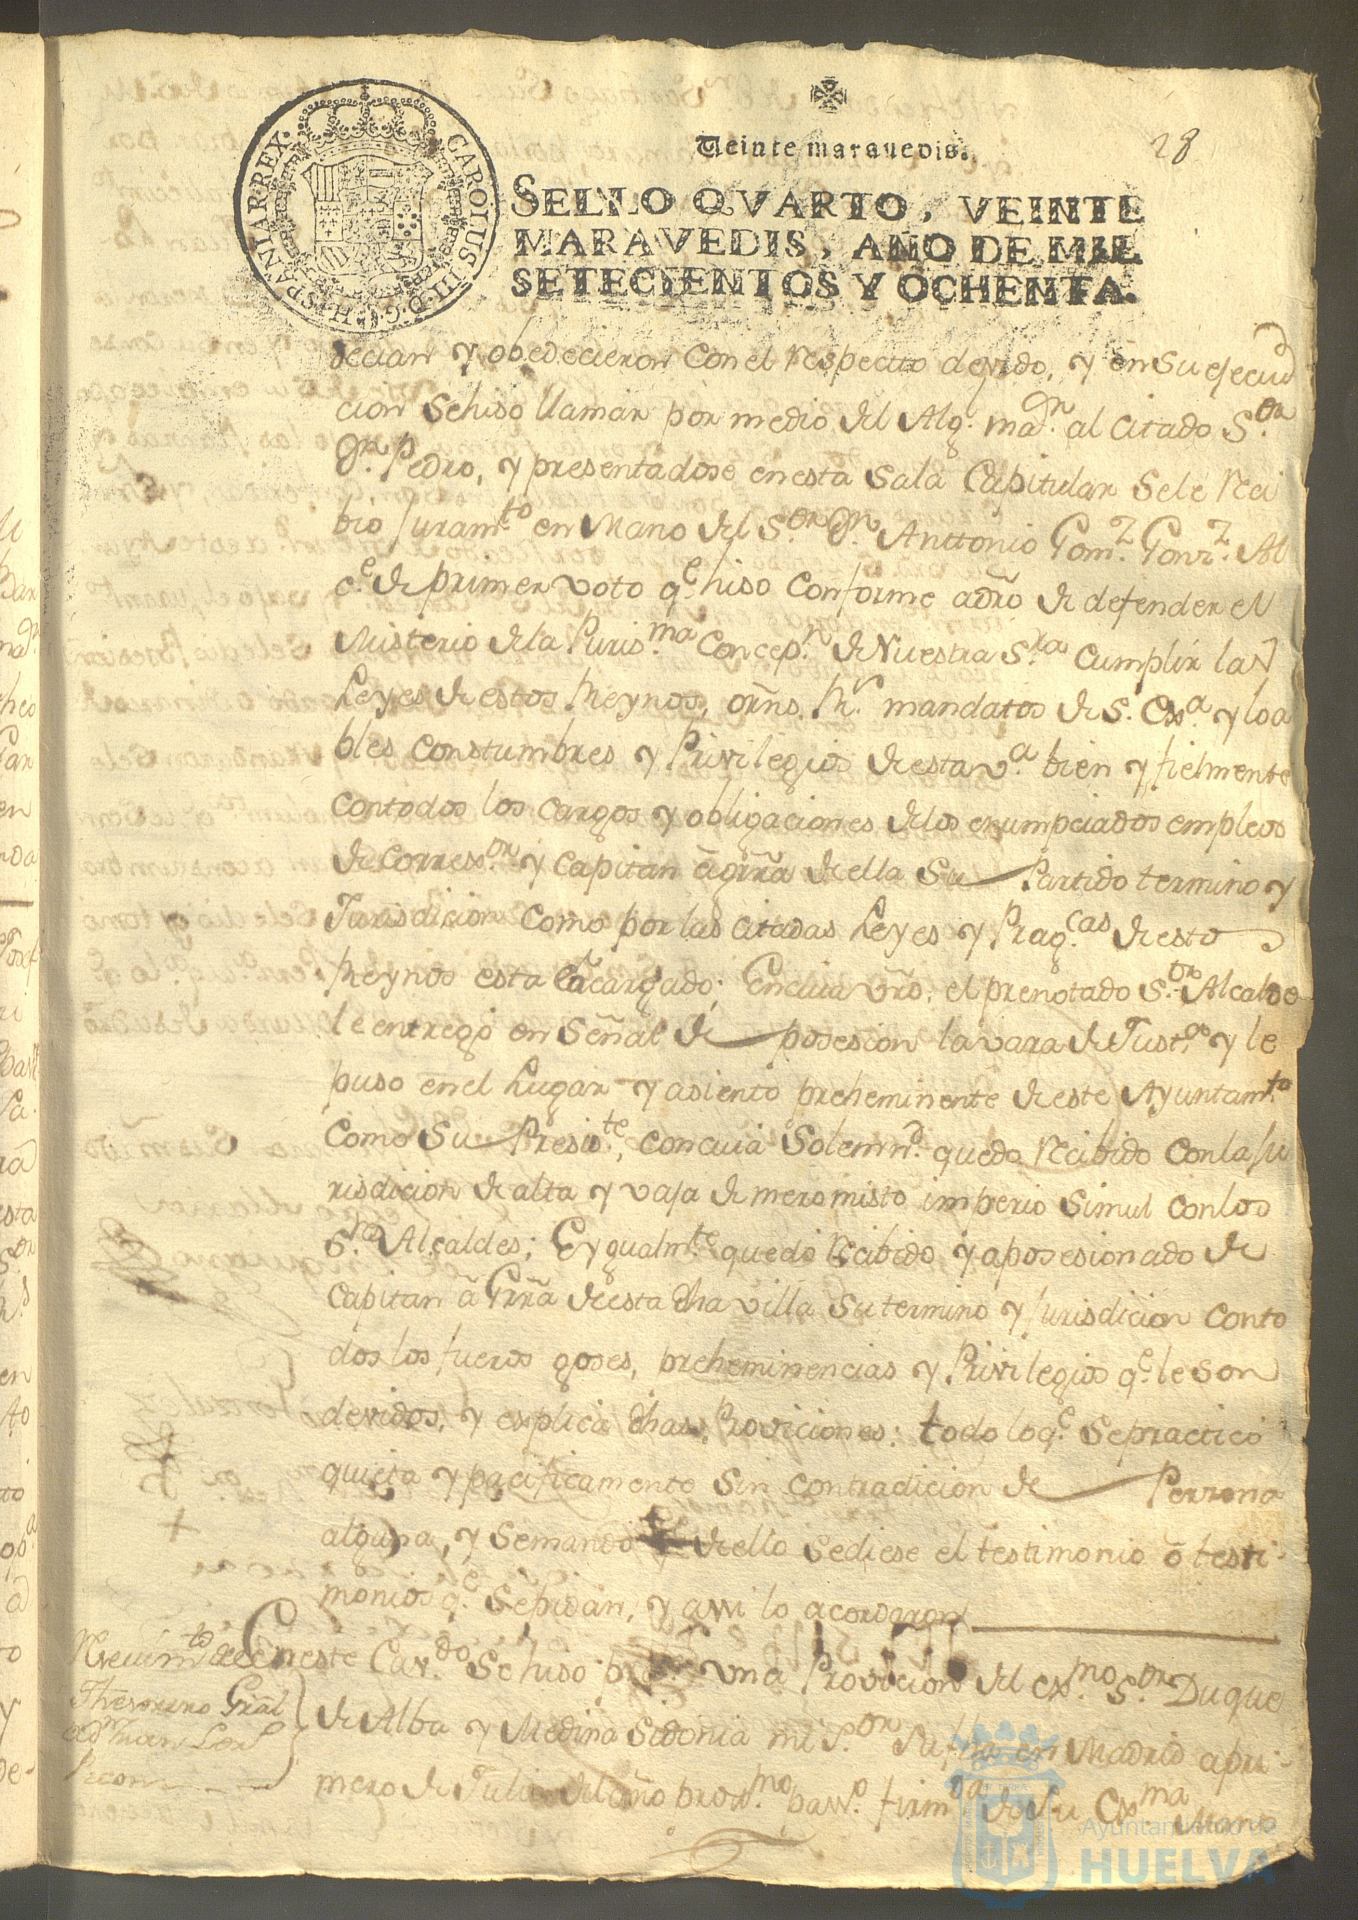 28
Veinte maravedis.
SELLO QVARTO, VEINTE
MARAVEDIS, AÑO DE MIL
SETECIENTOS Y OCHENTA.
CAROLUS III D.G. HISPANIAR REX
decian y obedecieron con el respecto devido, y en su ejecu
cion se hiso llamar por medio del Alg.r ma.or al citado S.or
Dn. Pedro, y presentadose en esta Sala Capitular se le reci
bio Juram.to en Mano del S.or Dn. Anttonio Gom.z Gonz.z Al
c.e de primer voto q.e hiso conforme a dro de defender el
Misterio de la Puris.ma Concep.n de Nuestra S.ra cumplir las
Leyes de estos Reynos, orns. Rs. mandatos de S. Ex.a y loa
bles constumbres y Privilegios de esta V.a bien y fielmente
con todos los cargos y obligaciones de los enunpciados empleos
de Correx.or y Capitan a grra de ella su Partido termino y
Jurisdicion como por las citadas Leyes y Prag.cas de esto
Reynos esta encargado; En cuia vrd. el prenotado S.or Alcalde
le entrego en señal de posesion la vara de Just.a y le
puso en el Lugar y asiento preheminente de este Ayuntam.to
como su Presid.te, con cuia solemn.d quedo recibido con la Ju
risdicion de alta y vaja de mero misto imperio simul con los
S.res Alcaldes; E ygualm.te quedo recibido y aposesionado de
Capitan a Grra de esta dha villa su termino y Jurisdicion con to
dos los fueros goses, preheminencias y Privilegios q.e le son
devidos, y explica dhas Proviciones: todo lo q.e se practico
quieta y pacificamente sin contradicion de Perzona
alguna, y se mando de ello se diese el testimonio o testi-
monios q.e se pidan, y assi lo acordaron
Revim.to de
Thesorero Gral
a Dn Juan
En este Cav.do se hiso una Provicion del Ex.mo S.or Duque
de Alba y Medina Sidonia mi S.or su fha en Madrid a pri-
mero de Julio del año prox.mo pass.o firm.da de su Ex.ma Mano
Ayuntamiento de
HUELVA